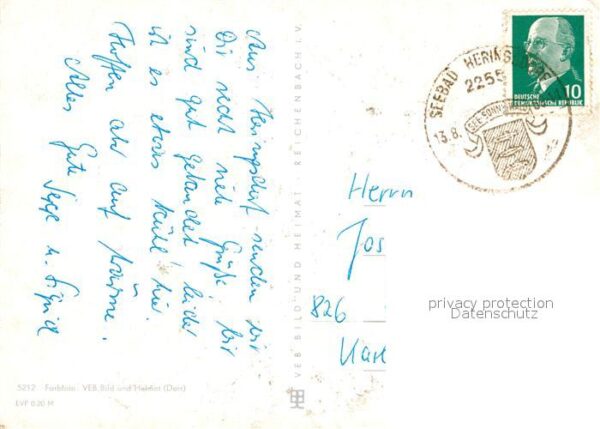 Aus Heringsdorf senden wir
Dir recht viele Grüße. Wir
sind gut gelandet, leider
ist es etwas kühl hier.
Hoffen aber auf Wärme.
Alles Gute Sepp u. Sigrid
5252 Farbfoto: VEB Bild und Heimat (Darr)
EVP 0.20 M
VEB BILD UND HEIMAT · REICHENBACH I. V.
SEEBAD HERINGSDORF
2255
13.8.
DEUTSCHE
DEMOKRATISCHE REPUBLIK
10
Herrn
Jos
826
privacy protection
Datenschutz